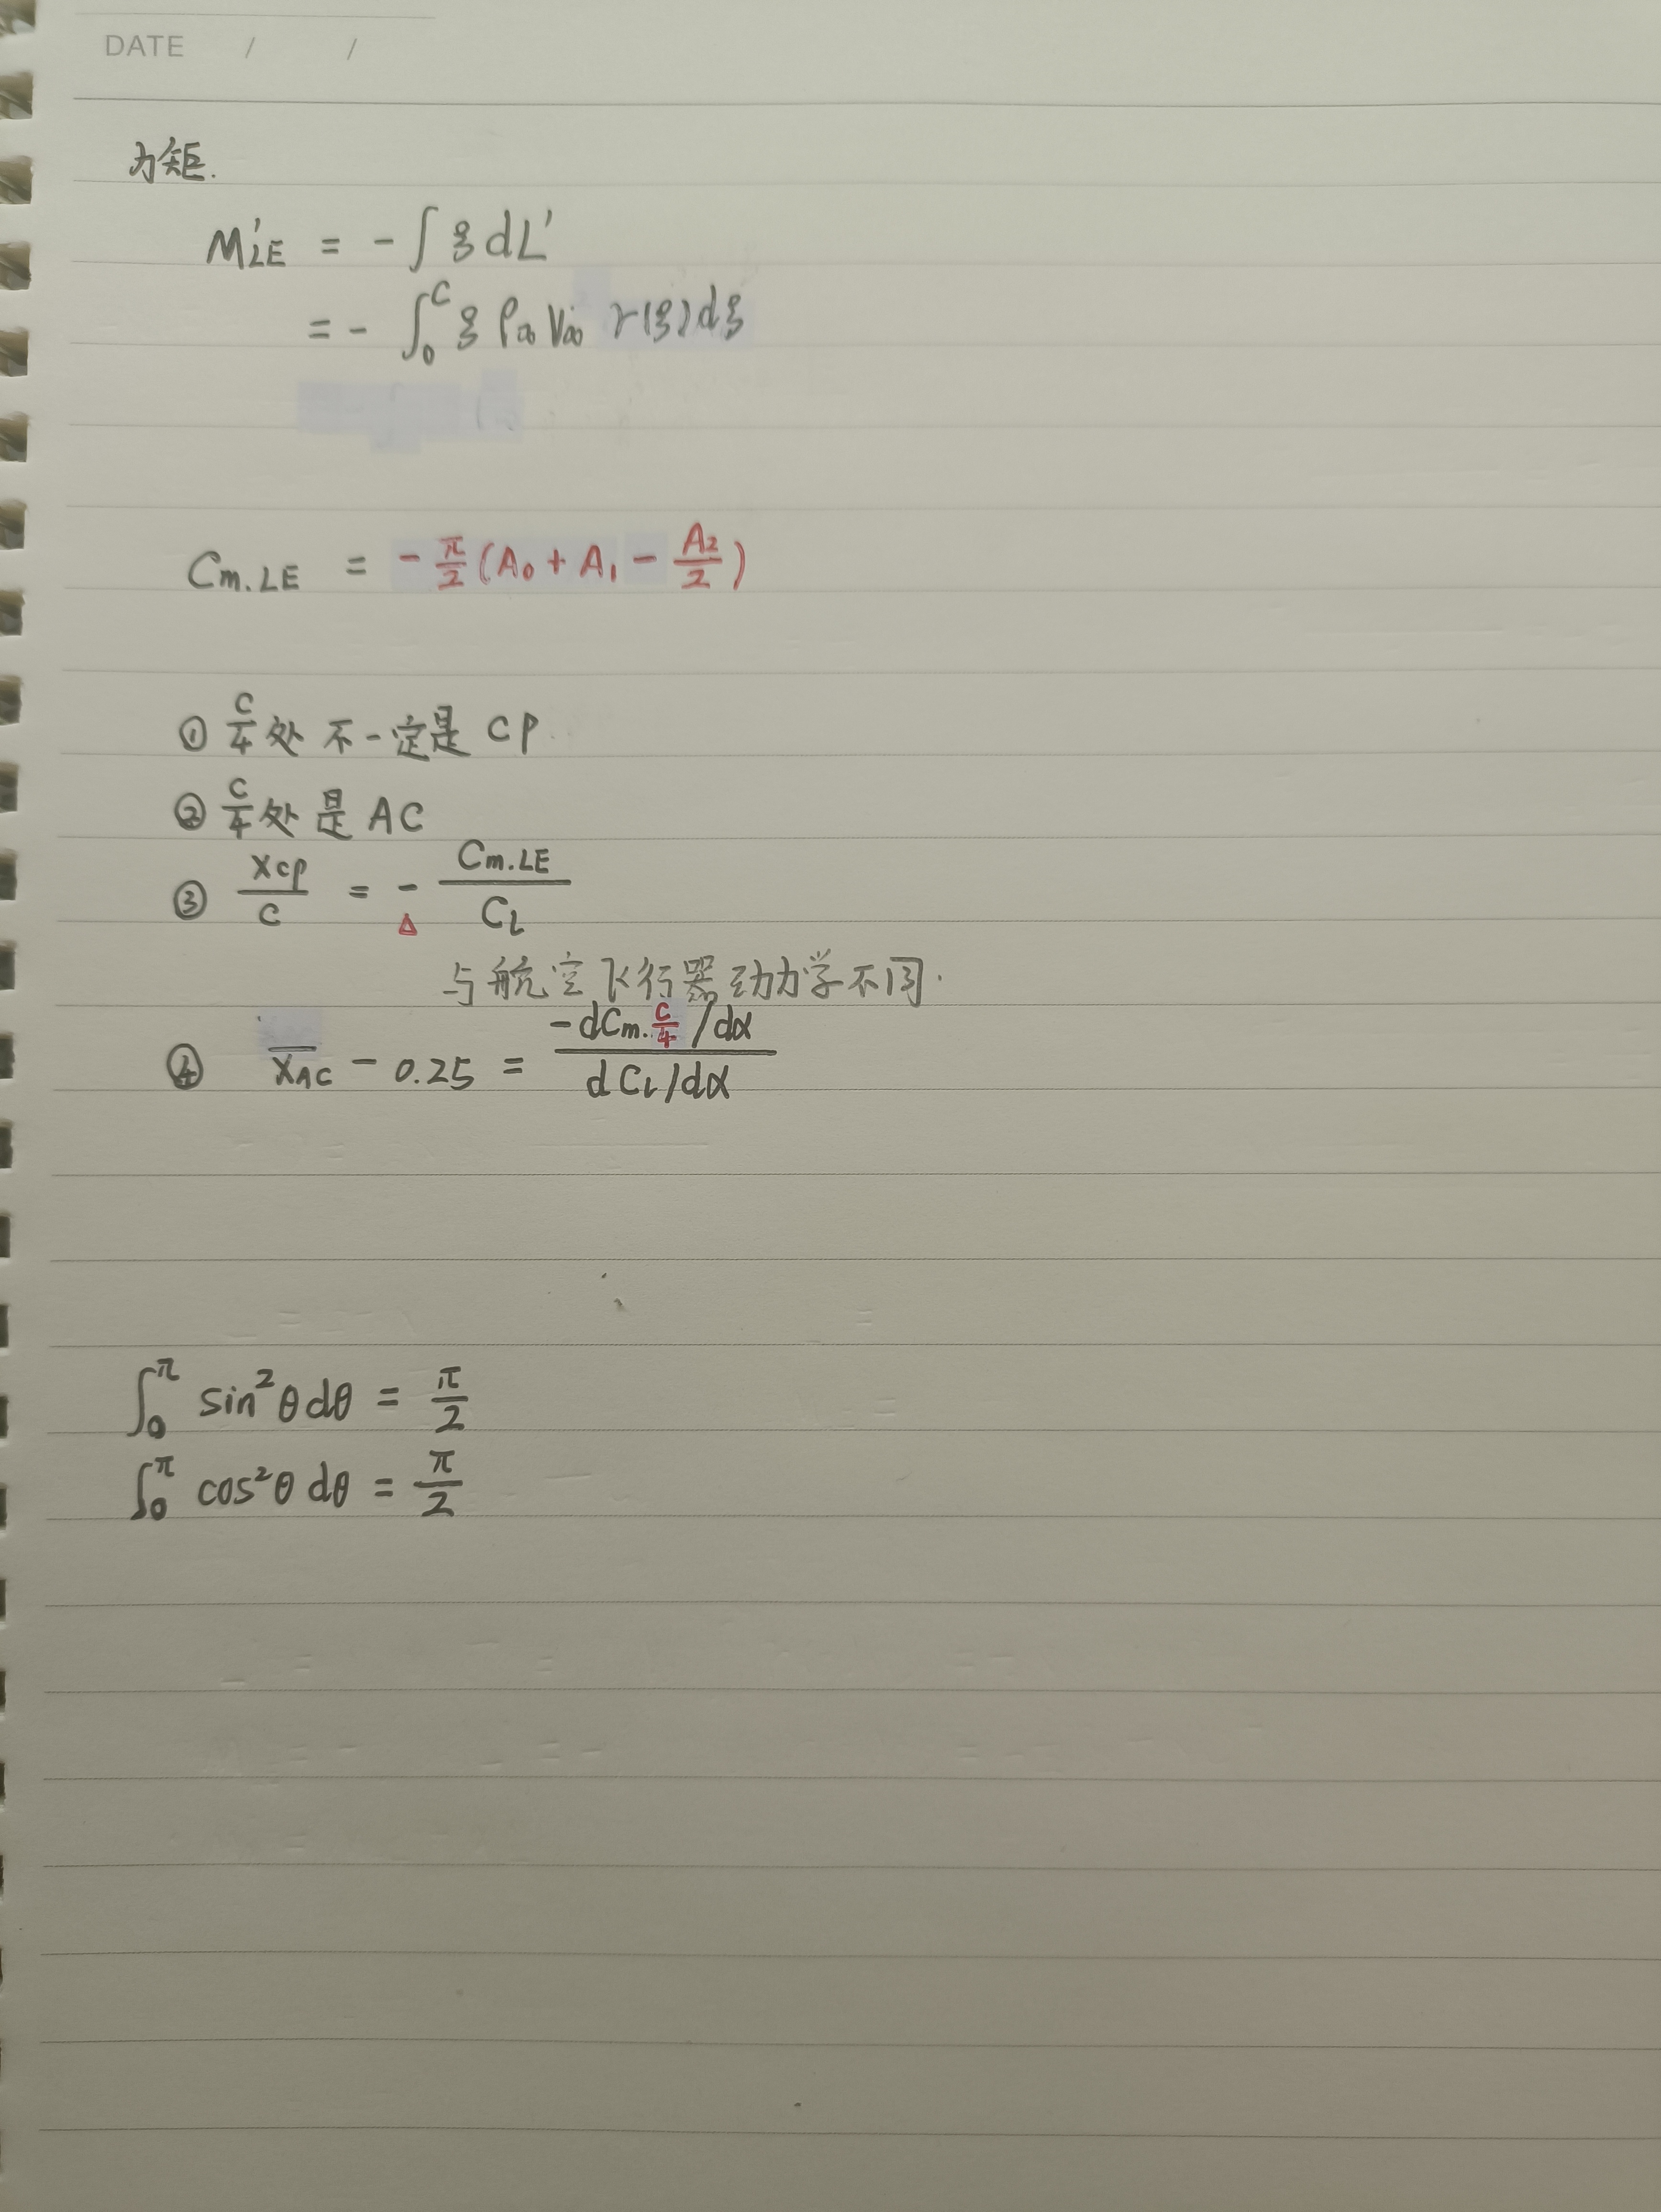 DATE / /
力矩.
M'LE = - ∫ ξ dL'
= - ∫₀ᶜ ξ ρ∞ V∞ γ(ξ) dξ
Cm.LE = - π/2 (A₀ + A₁ - A₂/2)
① c/4 处 不一定是 CP.
② c/4 处 是 AC
③ xcp/c = - Cm.LE/Cl
△
与航空飞行器动力学不同.
④ x̄AC - 0.25 = -dCm.c/4 /dα / dCl/dα
∫₀^π sin²θ dθ = π/2
∫₀^π cos²θ dθ = π/2